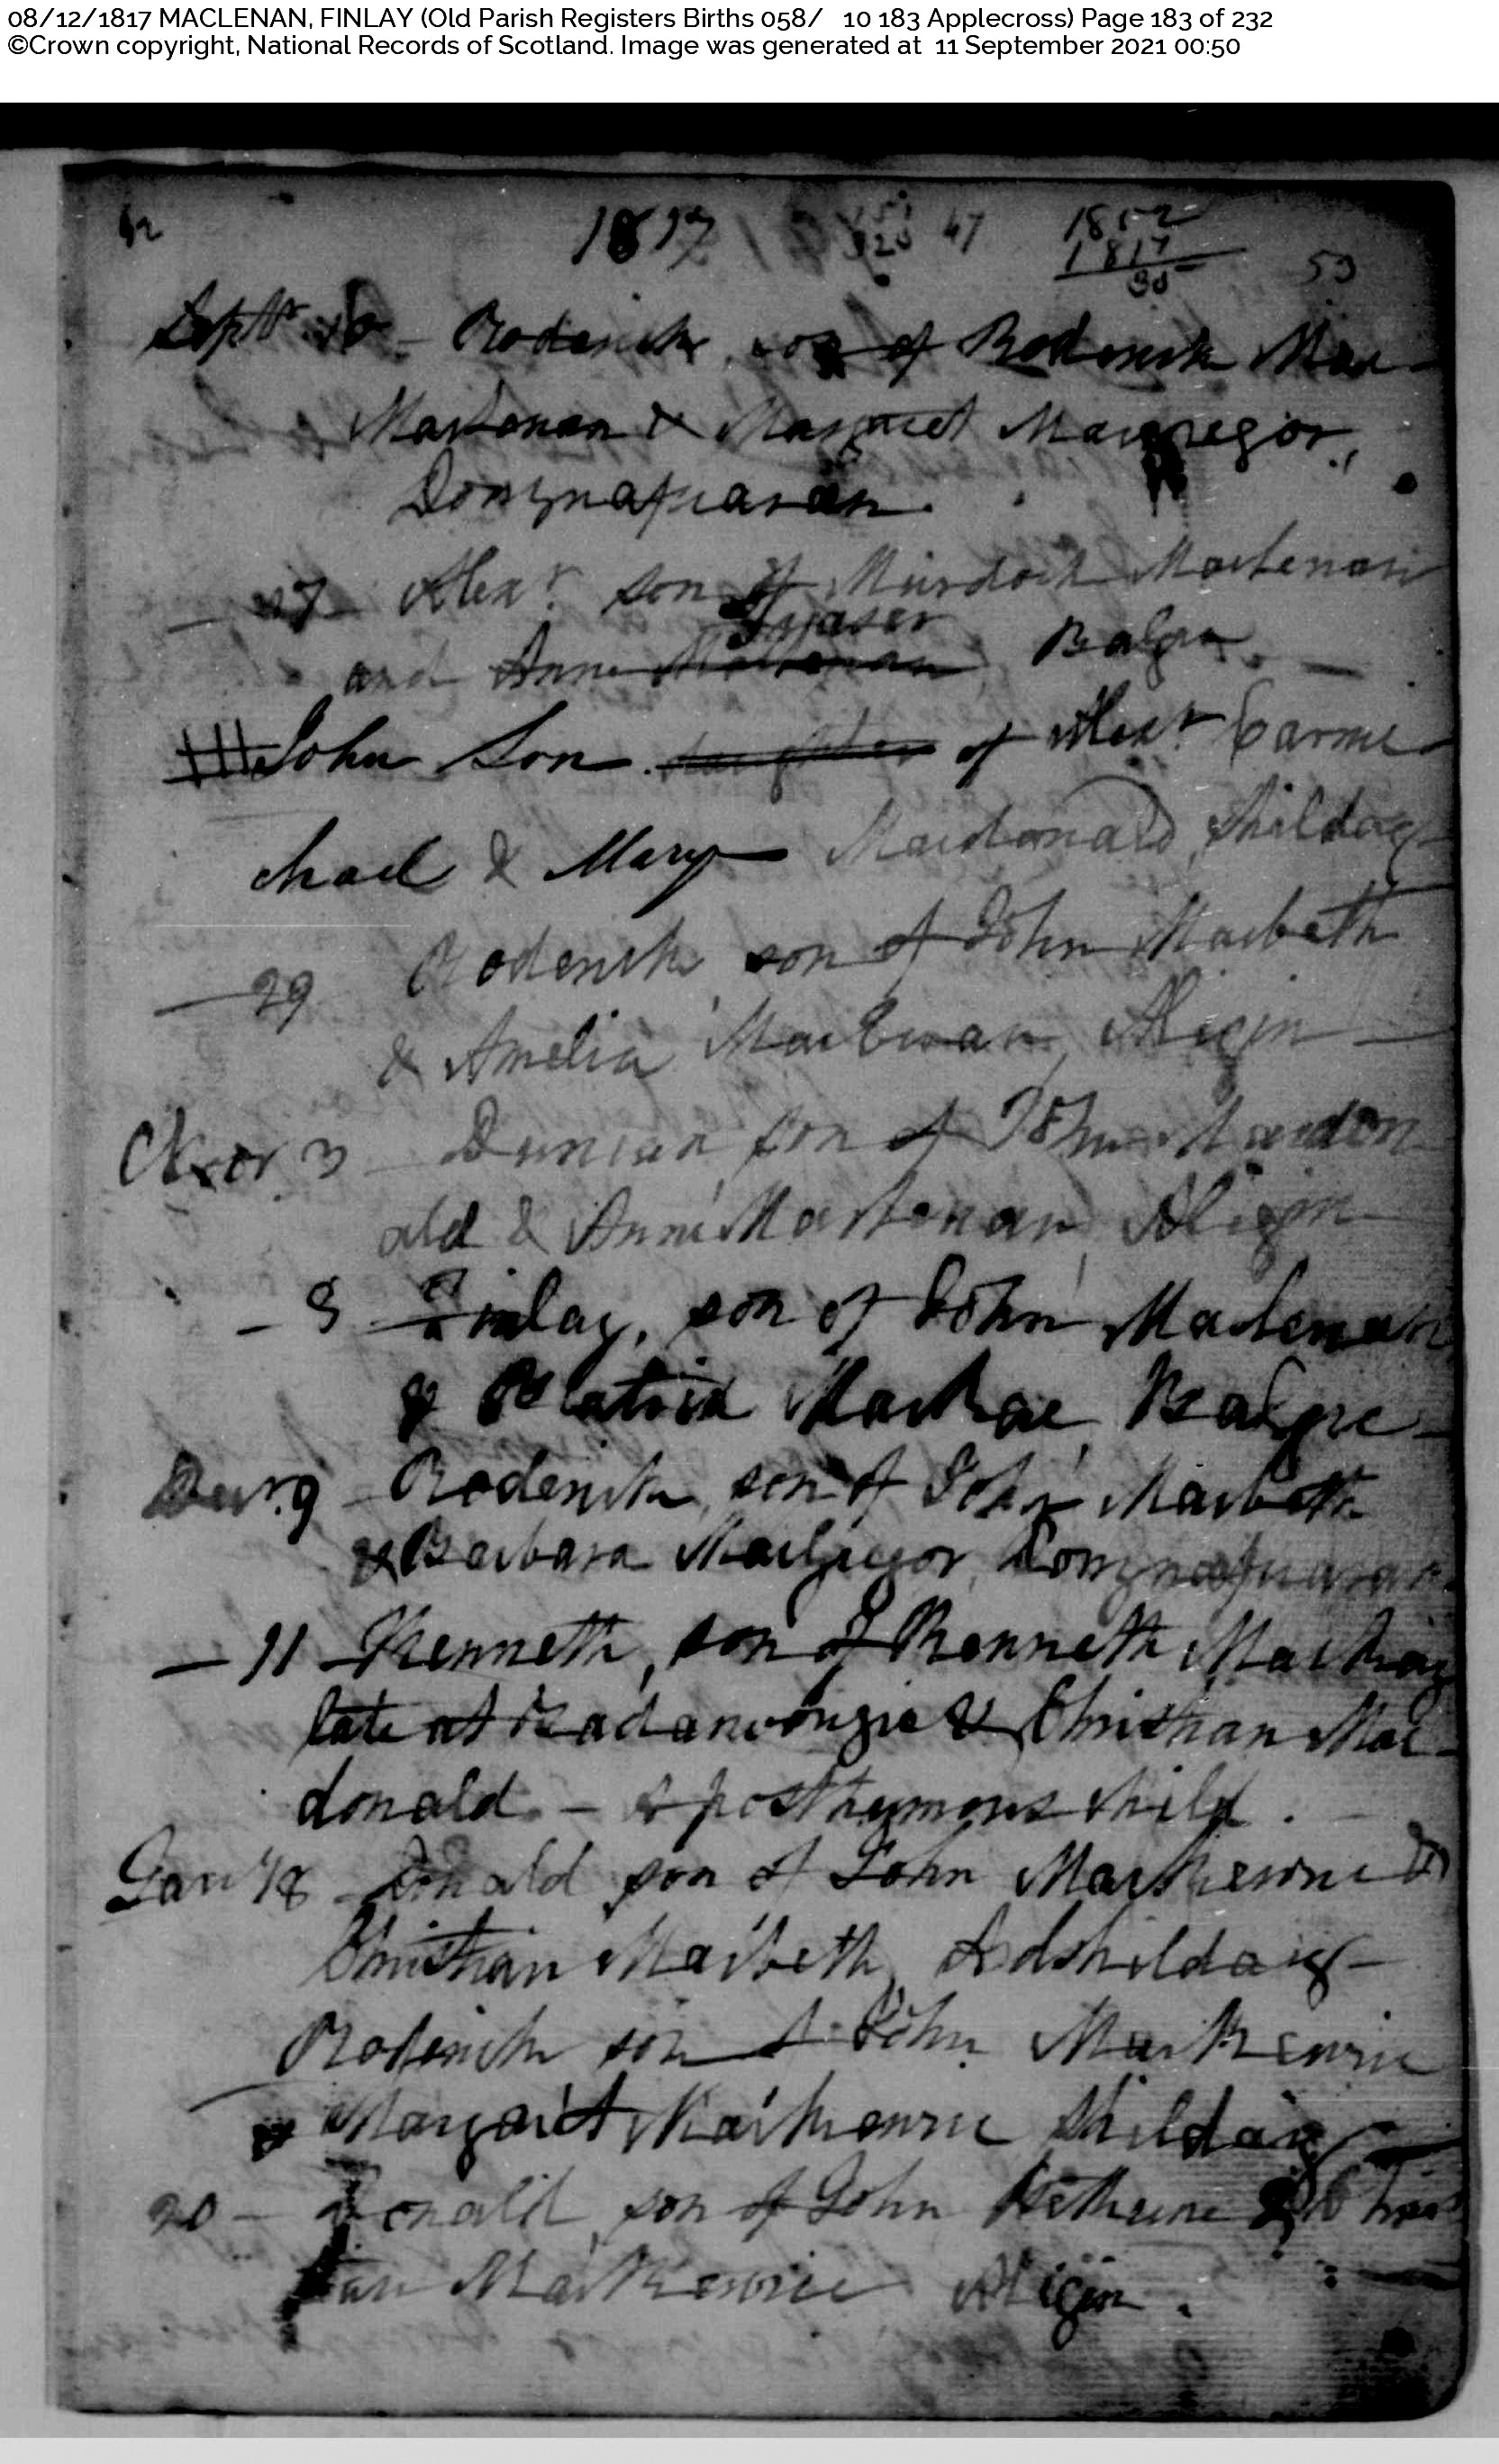 08/12/1817 MACLENAN, FINLAY (Old Parish Registers Births 058/ 10 183 Applecross) Page 183 of 232
©Crown copyright, National Records of Scotland. Image was generated at 11 September 2021 00:50
1817 47 1852
1817
35 53
Septr 10 - Roderick son of Roderick Mac
Maclenan & Margaret Macgregor,
Alexr son of Murdoch Maclenan
Fraser
and Anne Maclenan, Balgra. —
John Son daughter of Alexr Carmi
chael & Mary Macdonald, Shildag
— 29 Roderick son of John Macbeth
& Amelia MacEwan, Aligin —
Octor 3 - Duncan son of John Macdon
ald & Anne Maclenan Aligin
- 8 Finlay, son of John Maclenan
& Beatrix Mackae, Balgie -
Decr 9 - Roderick, son of John Macbeth
& Barbara MacGregor,
— 11 - Kenneth, son of Kenneth Mackay
late at & Christian Mac-
donald. - A posthumous child.
Jany 18 - Donald son of John Mackenzie &
Christian Macbeth, Ardshildaig -
Roderick son of John Mackenzie
& Margaret Mackenzie Shildaig
20 - Donald, son of John Bethune & Chris
tian Mackenzie Aligin.